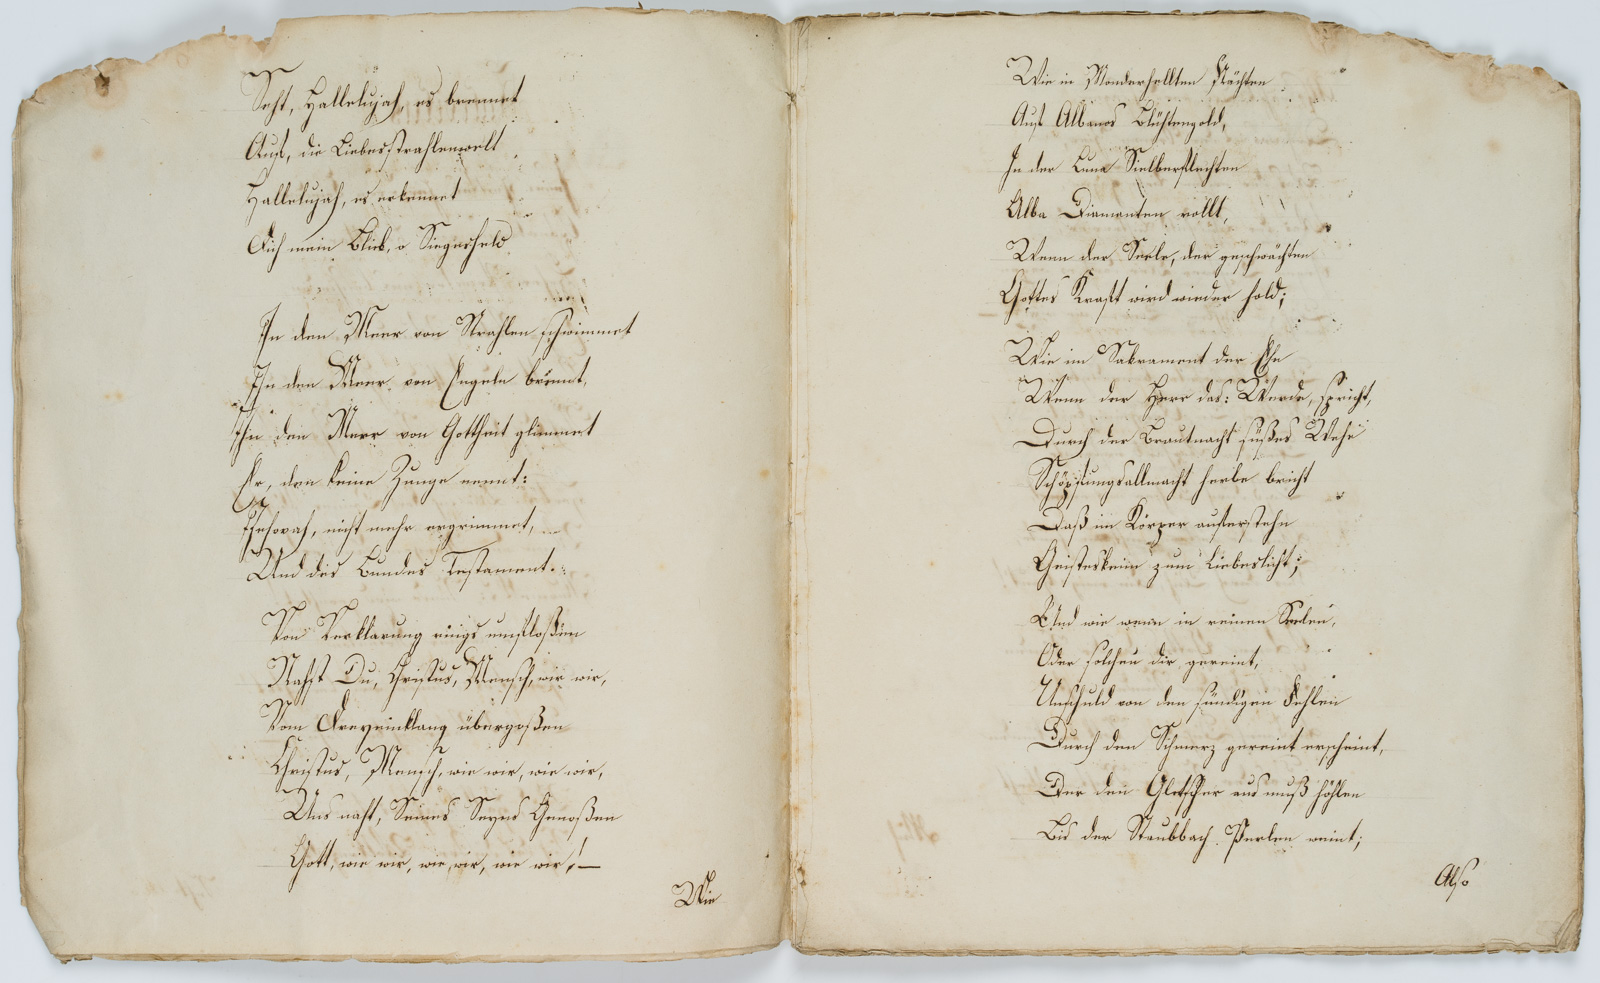 Seht, Hallelujah, es brennet
Auf, die Liebesstrahlenwelt
Hallelujah, es erkennet
Dich mein Blick, o Siegesheld.
In den Meer von Strahlen schwimmet
In den Meer von Engeln brennt,
In den Meer von Gottheit glimmet
Er, den keine Zunge nennt:
Jehovah, nicht mehr ergrimmet,
Und des Bundes Testament.
Von Verklärung rings umfloßen
Nahst Du, Christus, Mensch, wie wir,
Vom Dreyeinklang übergoßen
Christus, Mensch, wie wir, wie wir,
Uns naht, Seines Seyns Genoßen
Gott, wie wir, wie wir, wie wir! —
Wie
Wie in Monderhellten Nächten
Auf Albanos Blüthengold,
In der Luna Sielberflechten
Alba Diamanten rollt,
Wenn der Seele, der geschwächten
Gottes Kraft wird wieder hold;
Wie im Sakrament der Ehe
Wenn der Herr das: Werde, spricht,
Durch der Brautnacht süßes Wehe
Schöpfungsallmacht herbe bricht
Daß im Körper auferstehe
Geisteskeim zum Liebeslicht;
Und wie wenn in reinen Seelen,
Oder solchen dir gereint,
Unschuld von den sündigen Fehlen
Durch den Schmerz gereint erscheint,
Der den Gletscher aus muß höhlen
Bis der Staubbach Perlen weint;
Also